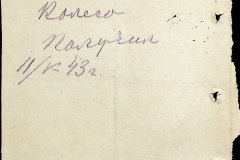 Колесо
Получил
11/V 43 г.